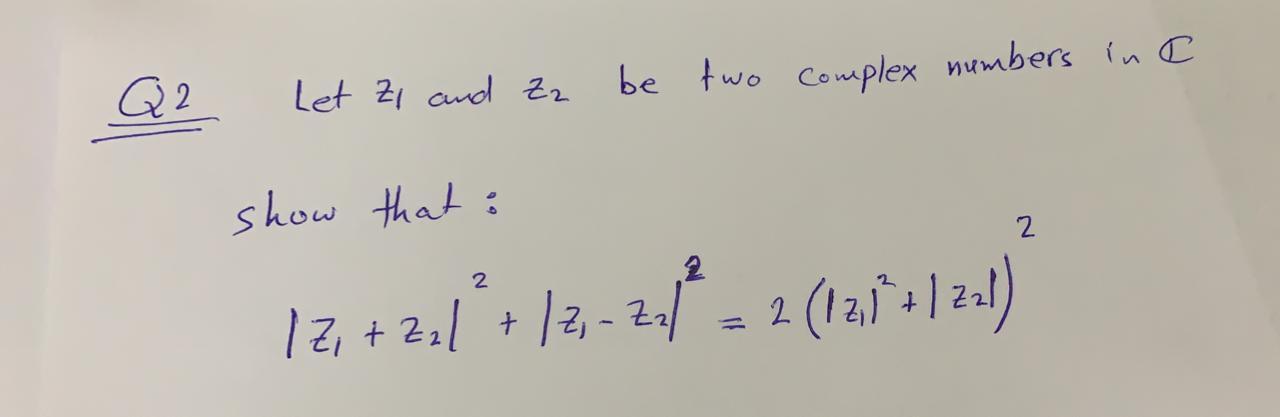 Q2 Let z₁ and z₂ be two complex numbers in ℂ
show that :
|z₁ + z₂|² + |z₁ - z₂|² = 2 (|z₁|² + |z₂|)²